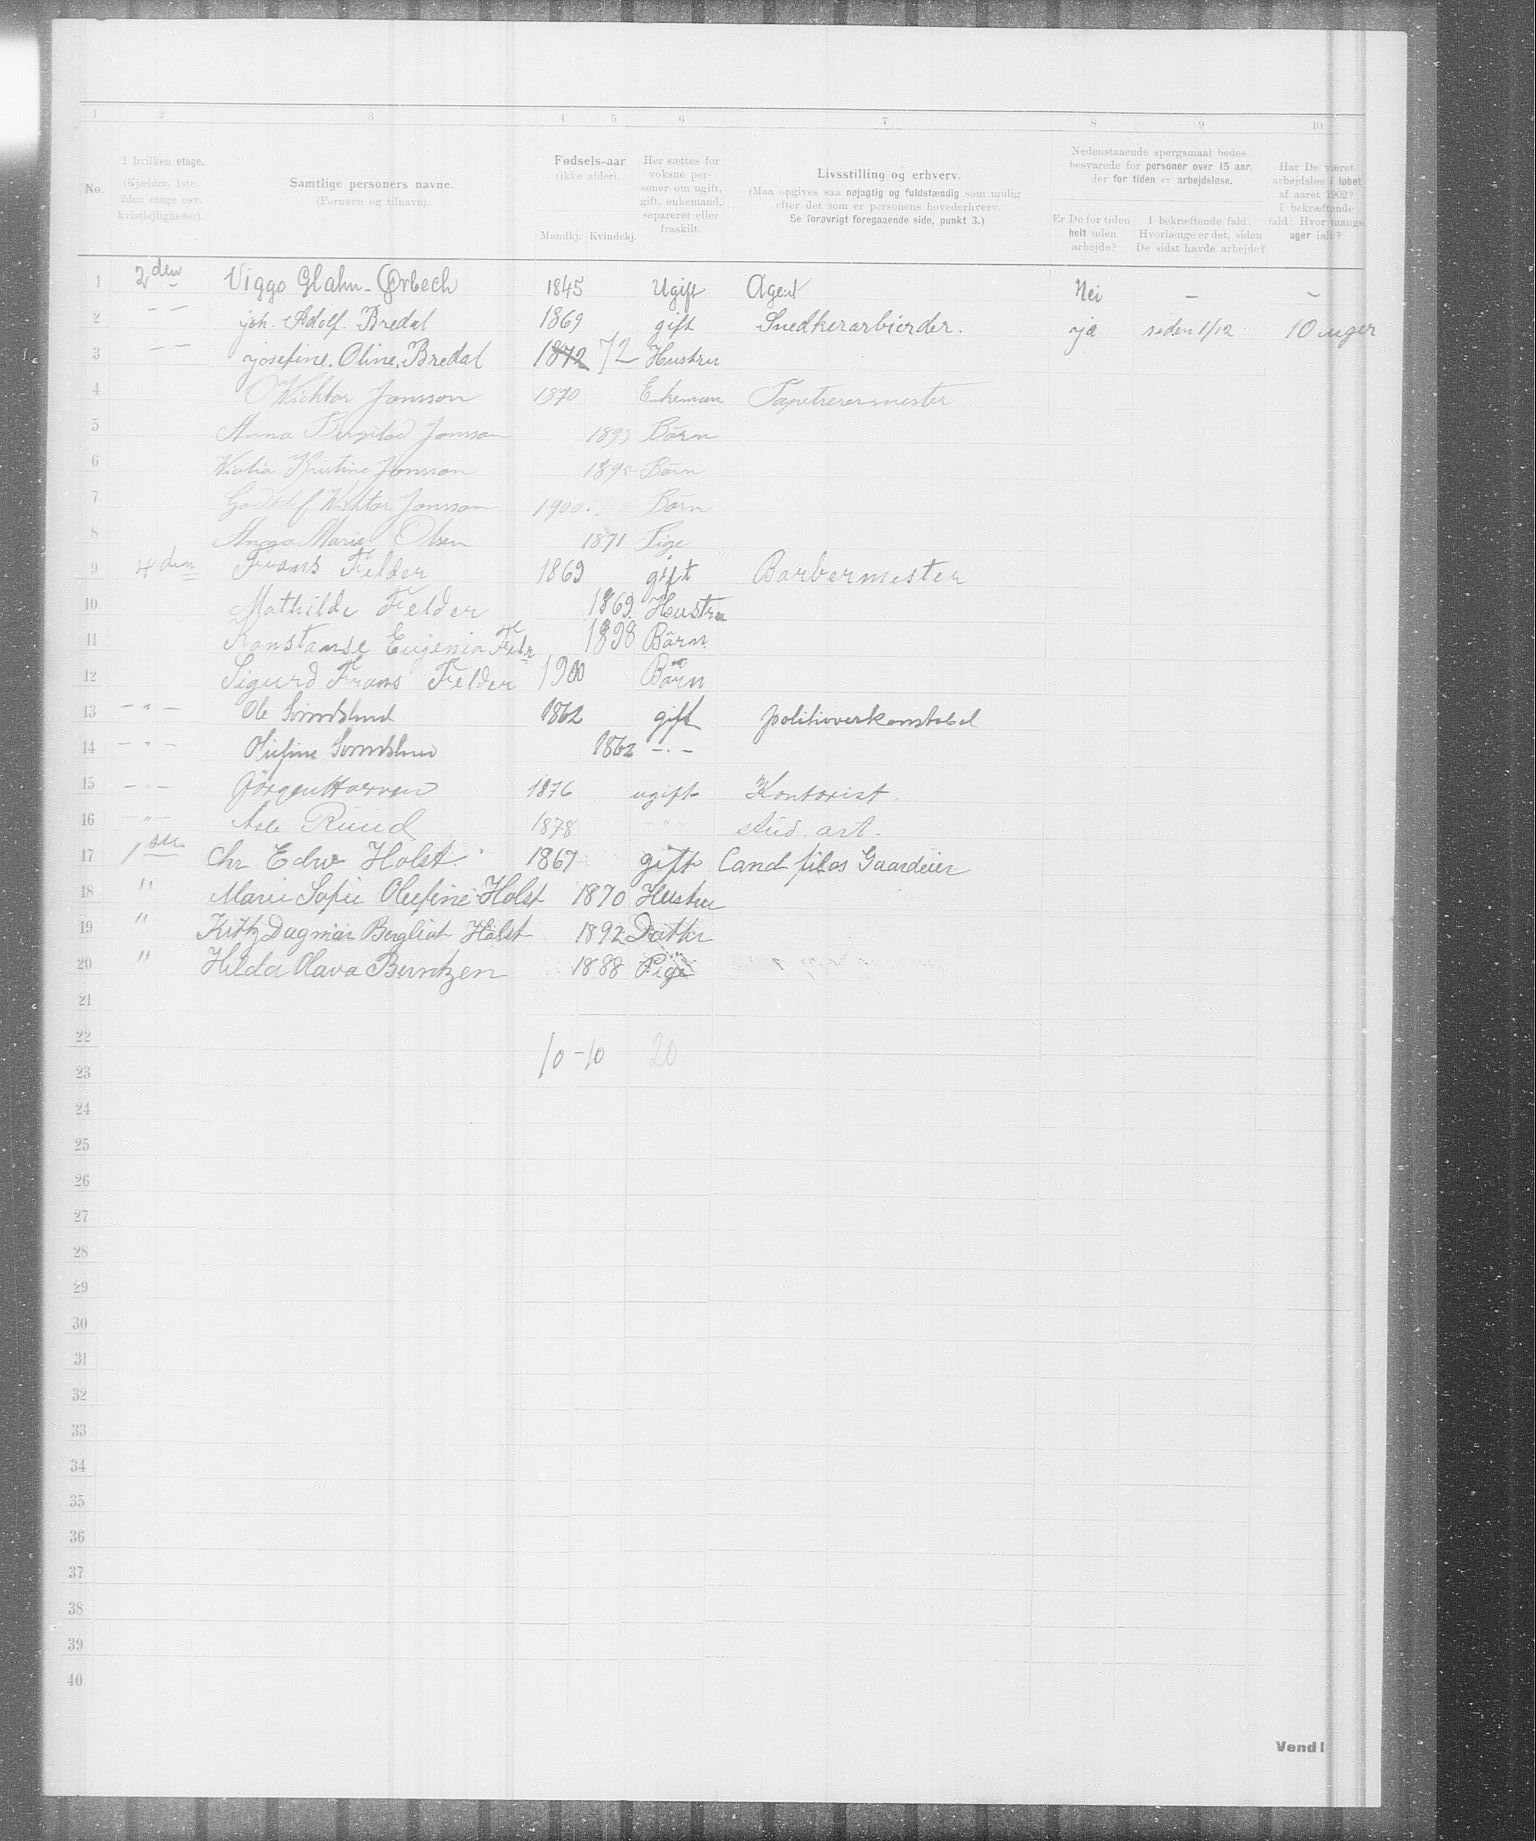 1 2 3 4 5 6 7 8 9 10
No.
I hvilken etage.
(Kjælder, 1ste,
2den etage osv.
kvistleiligheder).
Samtlige personers navne.
(Fornavn og tilnavn).
Fødsels-aar
(ikke alder).
Mandkj. Kvindekj.
Her sættes for
voksne per-
soner om ugift,
gift, enkemand,
separeret eller
fraskilt.
Livsstilling og erhverv.
(Maa opgives saa nøjagtig og fuldstændig som mulig
efter det som er personens hovederhverv.
Se forøvrigt foregaaende side, punkt 3.)
Nedenstaaende spørgsmaal bedes
besvarede for personer over 15 aar,
der for tiden er arbejdsløse.
Er De for tiden
helt uden
arbejde?
I bekræftende fald:
Hvorlænge er det, siden
De sidst havde arbejde?
Har De været
arbejdsløs i løbet
af aaret 1902?
I bekræftende
fald: Hvor mange
uger ialt?
1 2den Viggo Glahn-Ørbech 1845 Ugift Agent Nei — —
2 — — joh. Adolf. Bredal 1869 gift Snedkerarbeider. ja siden 1/12 10 uger
3 — — josefine. Oline. Bredal 1872 72 Hustru
4 Wicktor Jonsson 1870 Enkeman Tapetserermester
5 Anna Jonsson 1893 Börn
6 Kristine Jonsson Börn
7 Wicktor Jonsson 1900 Börn
8 Anna Marie Olsen 1871 Pige
9 4den Frans Felder 1869 gift Barbermester
10 Mathilde Felder 1869 Hustru
11 Konstanse Eugenia Feldr 1898 Börn
12 Sigurd Frans Felder 1900 Börn
13 — " — Ole 1862 gift politioverkonstabel
14 — " — Olufine 1862 — . —
15 — " — Jörgen 1876 ugift Kontorist.
16 — " — Asle Ruud 1878 — " — stud. art.
17 1ste Chr Edw Holst 1867 gift Cand filos Gaardeier
18 " Marie Sofie Olefine Holst 1870 Hustru
19 " Kitty Dagmar Bergliot Holst 1892 Datter
20 " Hilda Olava Berntzen 1888 Pige
21
22
10 - 10 20
23
24
25
26
27
28
29
30
31
32
33
34
35
36
37
38
39
40
Vend!